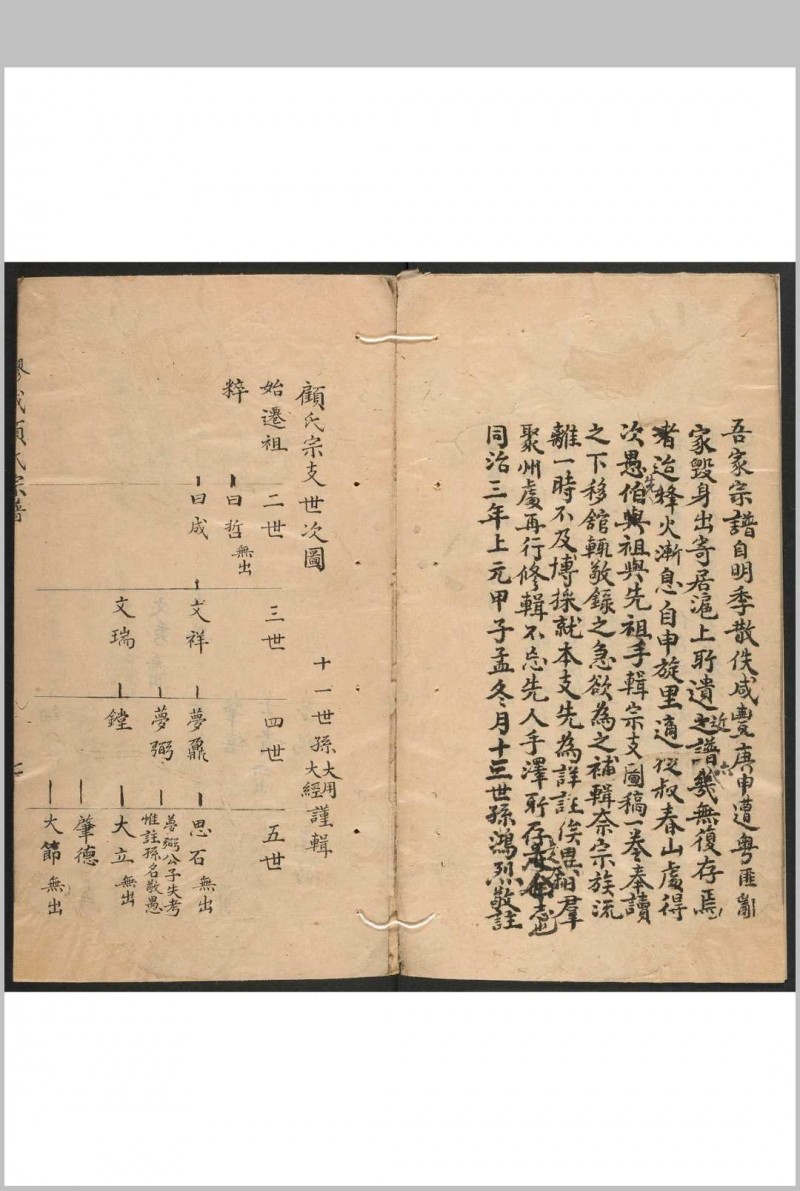 吾家宗譜自明季散佚咸豐庚申遭粵匪亂
家毀身出寄居滬上所遺之近譜幾無復存焉
者迨烽火漸息自申旋里適從叔春山處得
次愚伯與先祖與先祖手輯宗支圖稿一卷奉讀
之下移館輒敬錄之急欲為之補輯奈宗族流
離一時不及博採就本支先為詳註俟異日群
聚州處再行修輯不忘先人手澤所存
同治三年上元甲子孟冬月十三世孫鴻烈敬註
顧氏宗支世次圖
十一世孫大用大經謹輯
始遷祖 二世 三世 四世 五世
粹
曰哲 無出
曰成 文祥 夢鼐 思石 無出
夢弼 夢弼公子失考惟註孫名敬愚
文瑞 鏜 大立 無出
肇德
大節 無出
顧氏宗譜